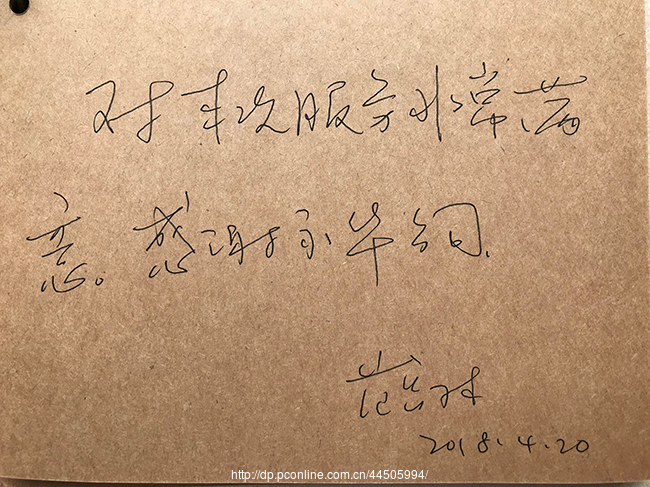 对本次服务非常满
意。感谢永华钢.
2018.4.20
http://dp.pconline.com.cn/44505994/